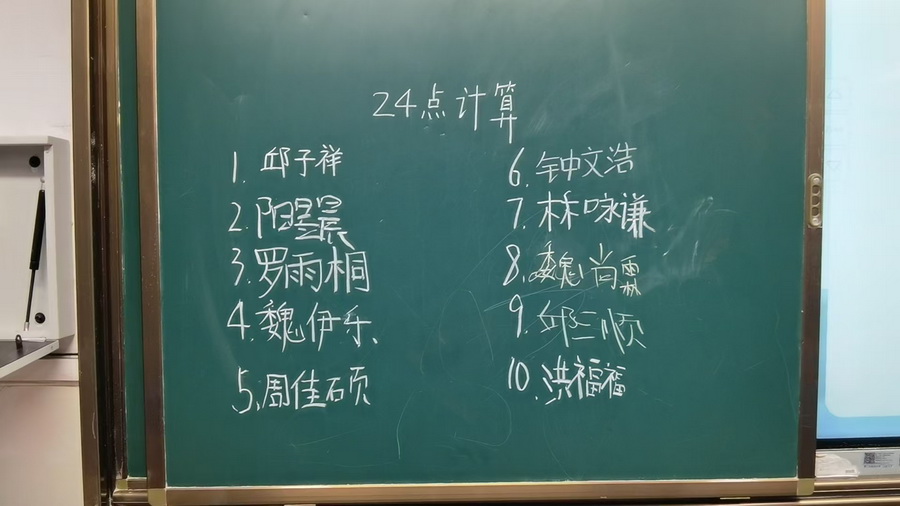 24点计算
1. 邱子祥
2. 阳昱晨
3. 罗雨桐
4. 魏伊乐
5. 周佳硕
6. 钟文浩
7. 林咏谦
8. 魏尚霖
9. 邱三顺
10. 洪福福